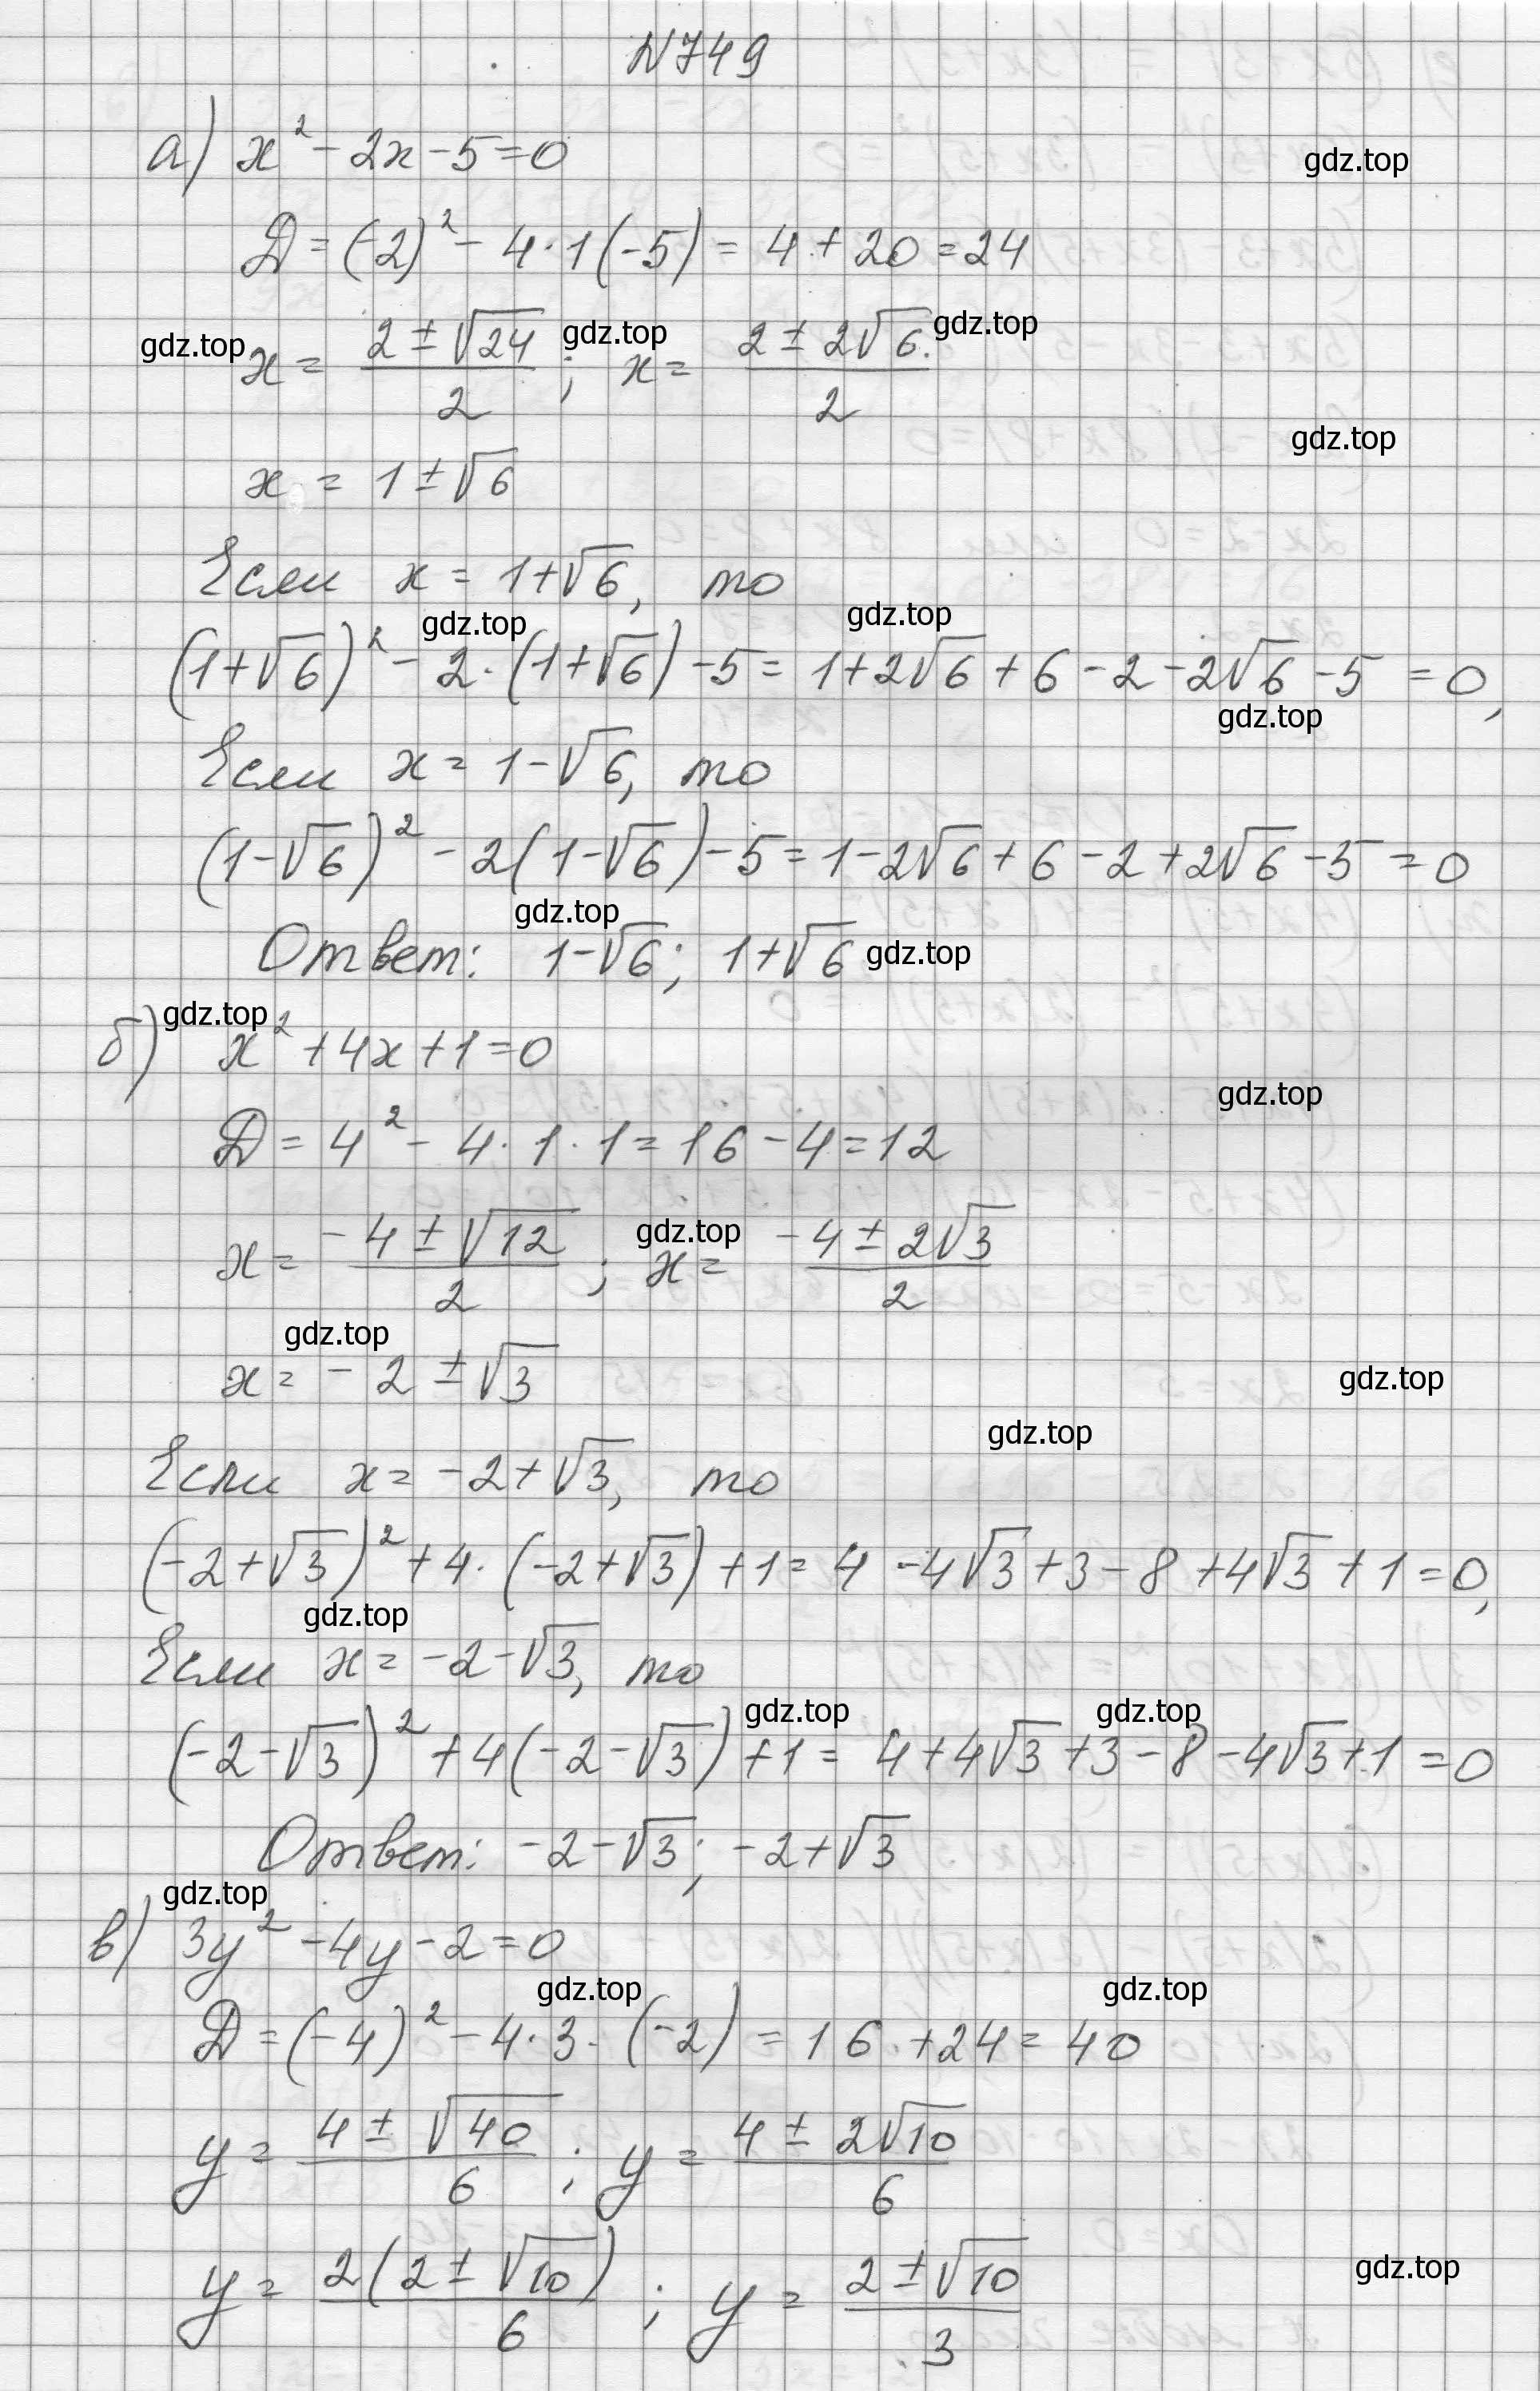 N749
а) x² - 2x - 5 = 0
gdz.top
D = (-2)² - 4·1(-5) = 4 + 20 = 24
gdz.top x = (2 ± √24)/2 ; gdz.top x = (2 ± 2√6.)/2 gdz.top
gdz.top
x = 1 ± √6
Если x = 1+√6, то
gdz.top gdz.top
(1+√6)² - 2·(1+√6) - 5 = 1 + 2√6 + 6 - 2 - 2√6 - 5 = 0,
gdz.top
Если x = 1-√6, то
(1-√6)² - 2(1-√6) - 5 = 1 - 2√6 + 6 - 2 + 2√6 - 5 = 0
gdz.top
Ответ: 1-√6; 1+√6 gdz.top
gdz.top
б) x² + 4x + 1 = 0
gdz.top
D = 4² - 4·1·1 = 16 - 4 = 12
x = (-4 ± √12)/2 ; gdz.top x = (-4 ± 2√3)/2
gdz.top
x = -2 ± √3
gdz.top
gdz.top
Если x = -2+√3, то
(-2+√3)² + 4·(-2+√3) + 1 = 4 - 4√3 + 3 - 8 + 4√3 + 1 = 0,
gdz.top
Если x = -2-√3, то
gdz.top gdz.top
(-2-√3)² + 4(-2-√3) + 1 = 4 + 4√3 + 3 - 8 - 4√3 + 1 = 0
Ответ: -2-√3; -2+√3
gdz.top
в) 3y² - 4y - 2 = 0
gdz.top gdz.top
D = (-4)² - 4·3·(-2) = 16 + 24 = 40
y = (4 ± √40)/6 ; y = (4 ± 2√10)/6
y = 2(2 ± √10)/6 ; y = (2 ± √10)/3
gdz.top